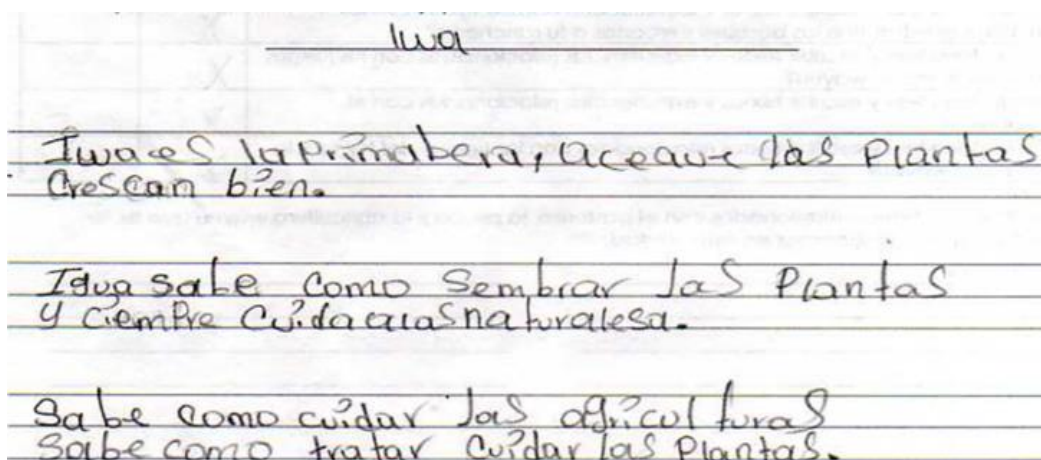 Iwa
Iwa es la primabera, ace que las plantas
crescan bien.
Igua sabe como sembrar las plantas
y ciempre cuida a las naturalesa.
sabe como cuidar las agriculturas
sabe como tratar cuidar las plantas.